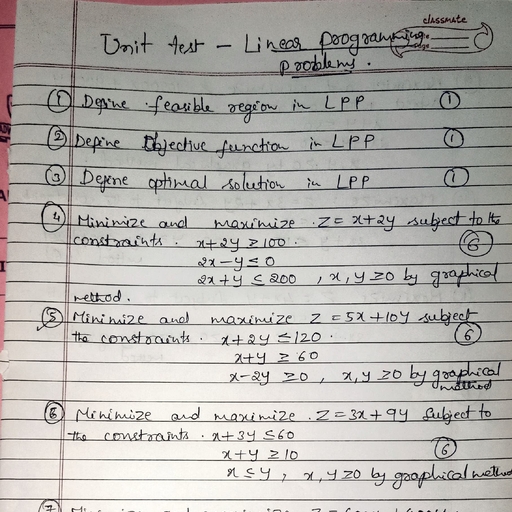 classmate
Unit test – Linear programming
problems.
① Define feasible region in LPP ①
② Define Objective function in LPP ①
③ Define optimal solution in LPP ①
④ Minimize and maximize. Z = x+2y subject to the
constraints. x+2y ≥ 100. ⑥
2x−y ≤ 0
2x+y ≤ 200 , x,y ≥0 by graphical
method.
⑤ Minimize and maximize Z = 5x+10y subject
the constraints. x+2y ≤120. ⑥
x+y ≥ 60
x−2y ≥0 , x,y ≥0 by graphical
method
⑥ Minimize and maximize. Z=3x+9y Subject to
the constraints. x+3y ≤60
x+y ≥10 ⑥
x ≤ y , x,y ≥0 by graphical method